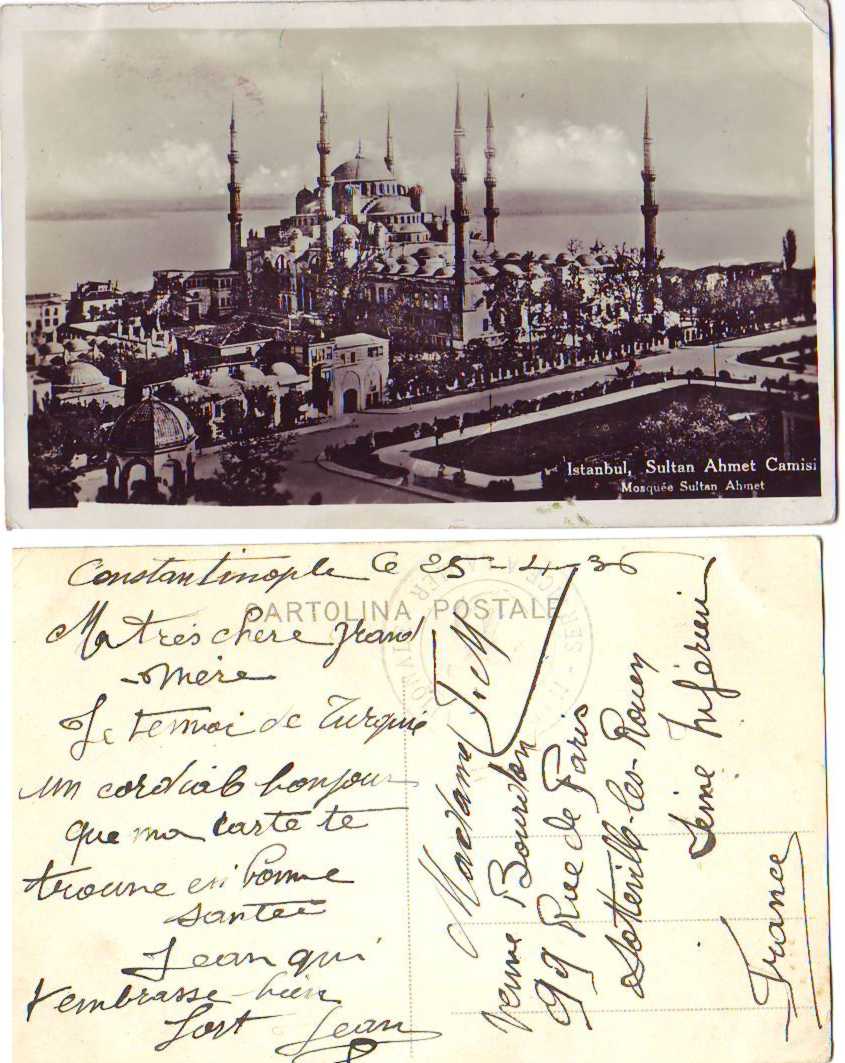 Istanbul, Sultan Ahmet Camisi
Mosquée Sultan Ahmet
Constantinople le 25-4-36
CARTOLINA POSTALE
Ma très chère grand
-mère
Je t'envoi de Turquie
un cordial bonjour
que ma carte te
trouve en bonne
santée
Jean qui
t'embrasse bien
fort Jean
F.M
Madame
Veuve Bourdon
99 Rue de Paris
Sotteville-les-Rouen
Seine Inférieur
France